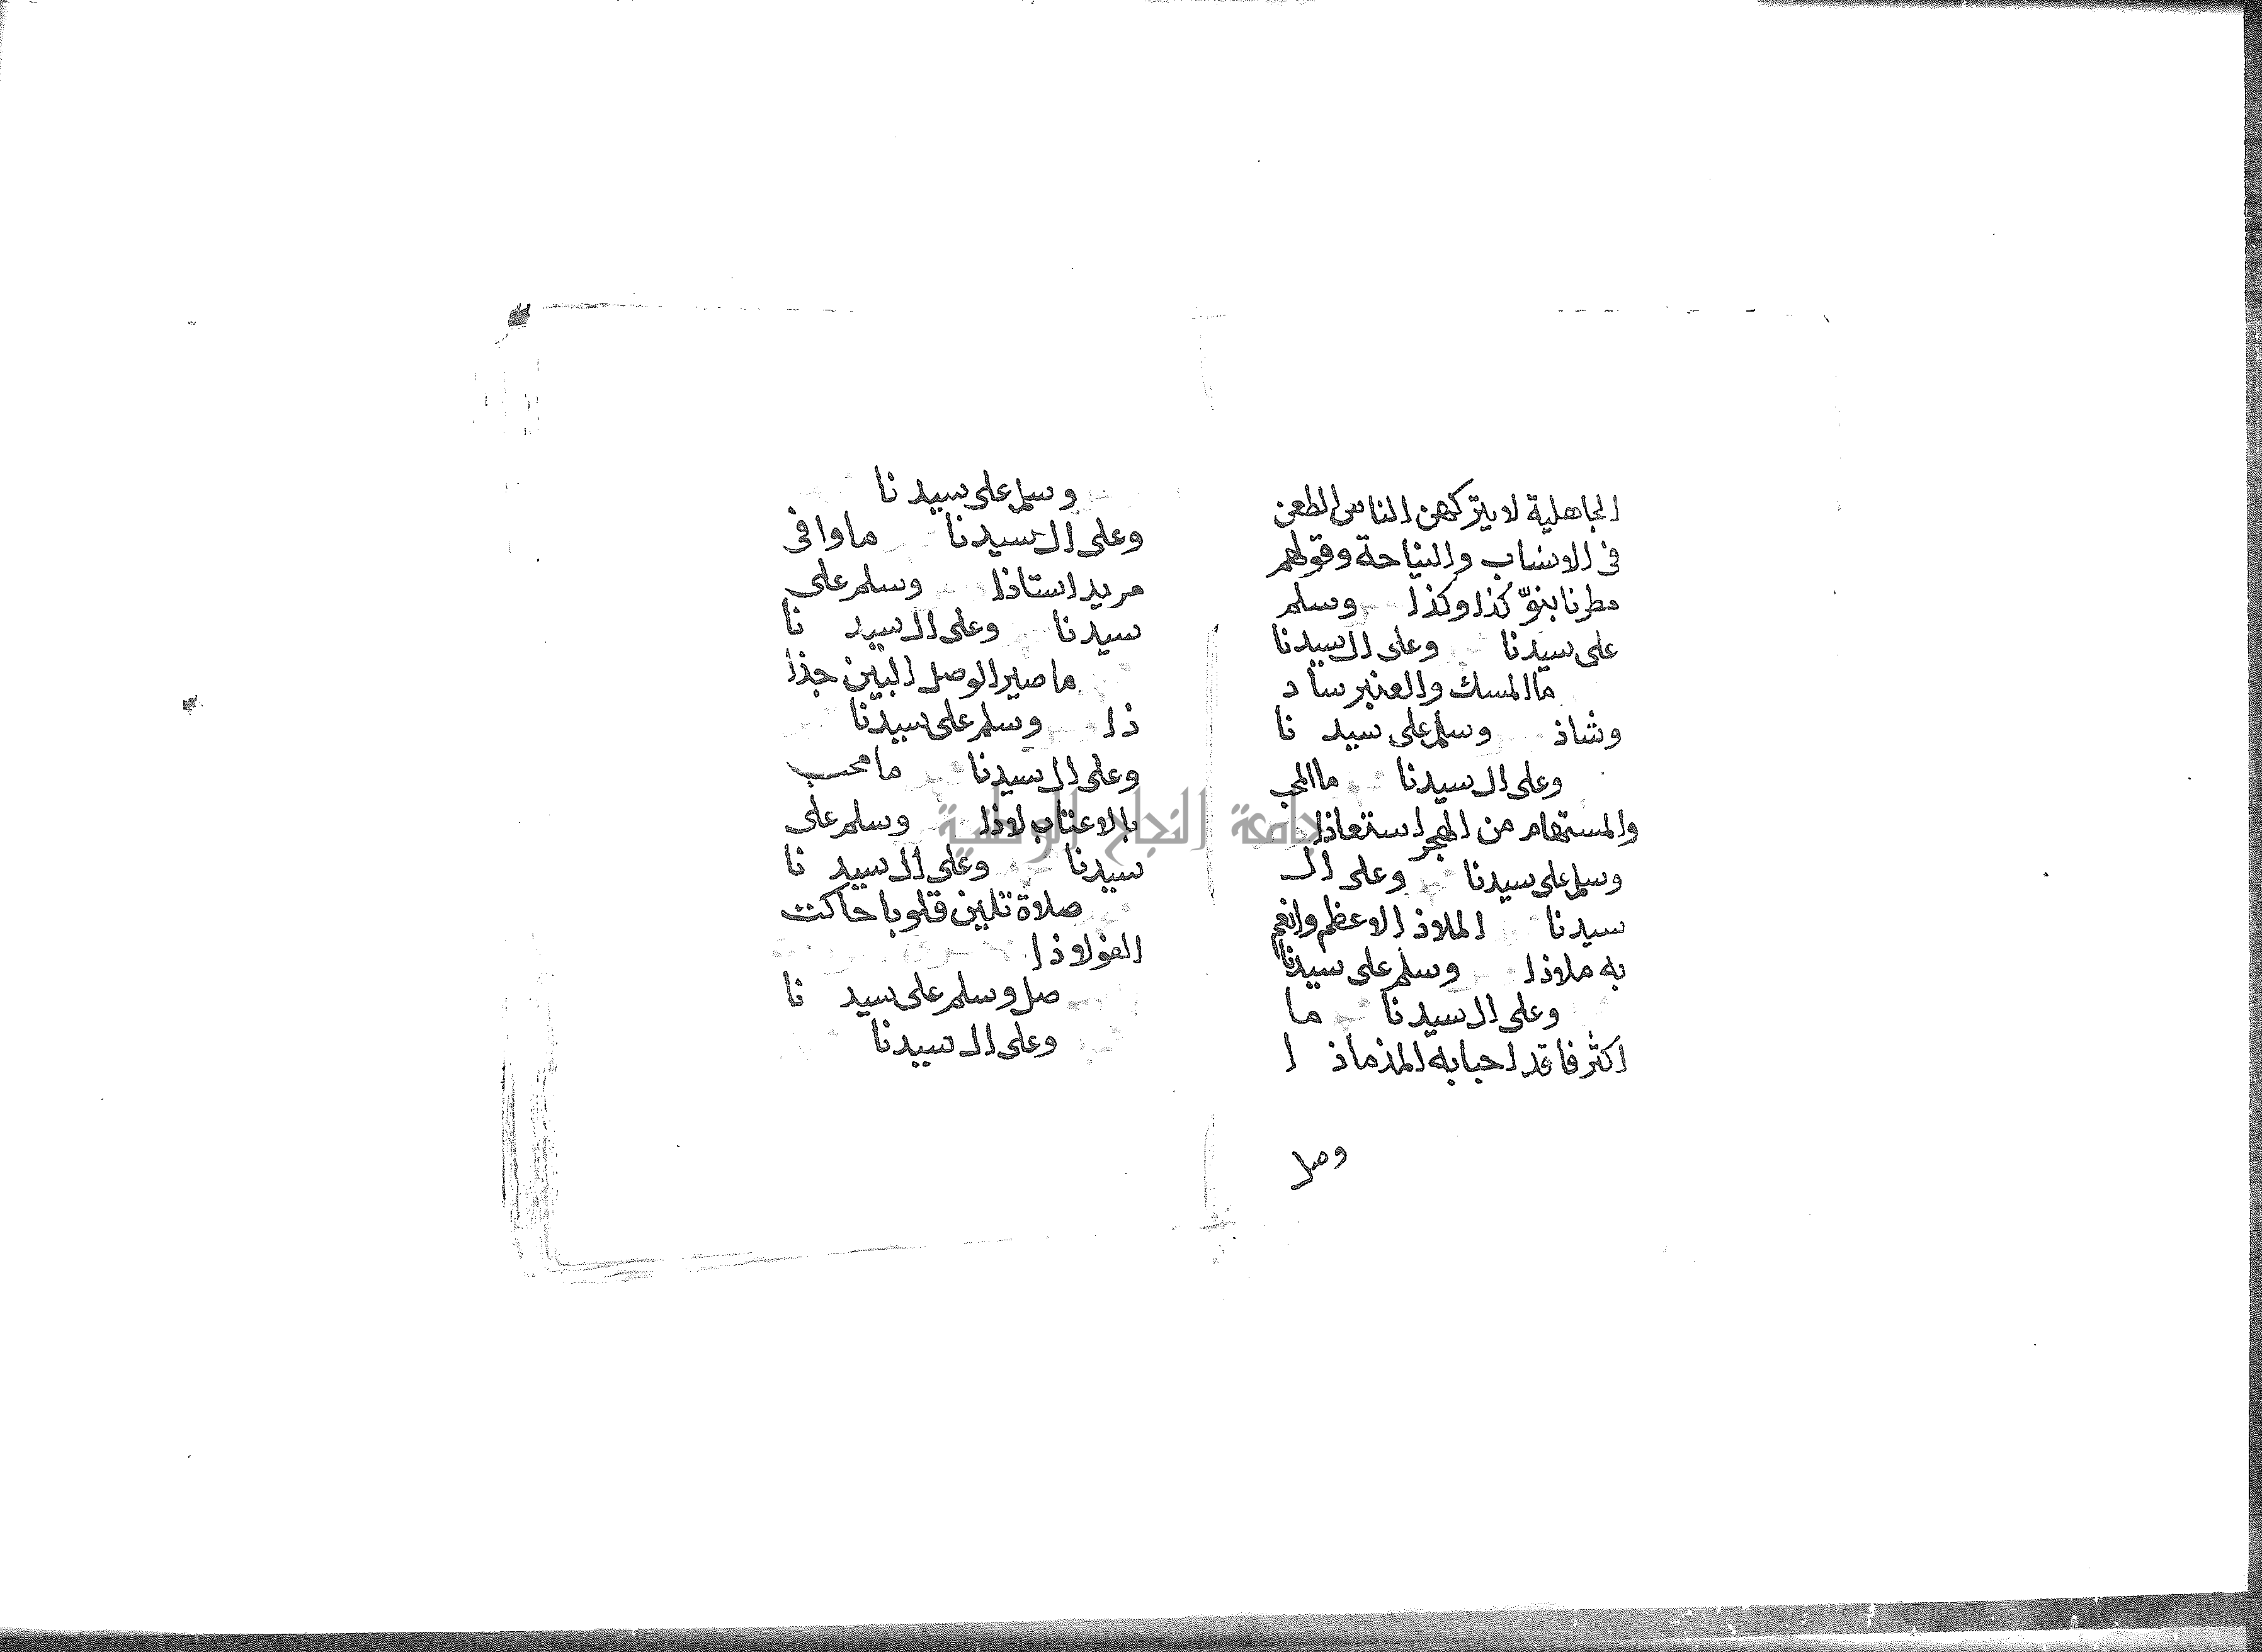 الجاهلية لا يتركهن الناس الطعن
في الانساب والنياحة وقولهم
مطرنا بنوّ كذا وكذا وسلم
على سيدنا وعلى ال سيدنا
ما المسك والعنبر ساد
وشاذ وسلم على سيد نا
وعلى ال سيدنا ما المحب
والمستهام من الهجر استعاذا
وسلم على سيدنا وعلى ال
سيدنا الملاذ الاعظم وانعم
به ملاذا وسلم على سيدنا
وعلى ال سيدنا ما
اكثر فاقد احبابه المذماذ ا
وصل
وسلم على سيد نا
وعلى ال سيدنا ما وافى
مريد استاذا وسلم على
سيدنا وعلى ال سيد نا
ما صير الوصل البين جذا
ذا وسلم على سيدنا
وعلى ال سيدنا ما محب
بالاعتاب لاذا وسلم على
سيدنا وعلى ال سيد نا
صلاة تلين قلوبا حاكت
الفولاذا
صل وسلم على سيد نا
وعلى ال سيدنا
جامعة النجاح الوطنية